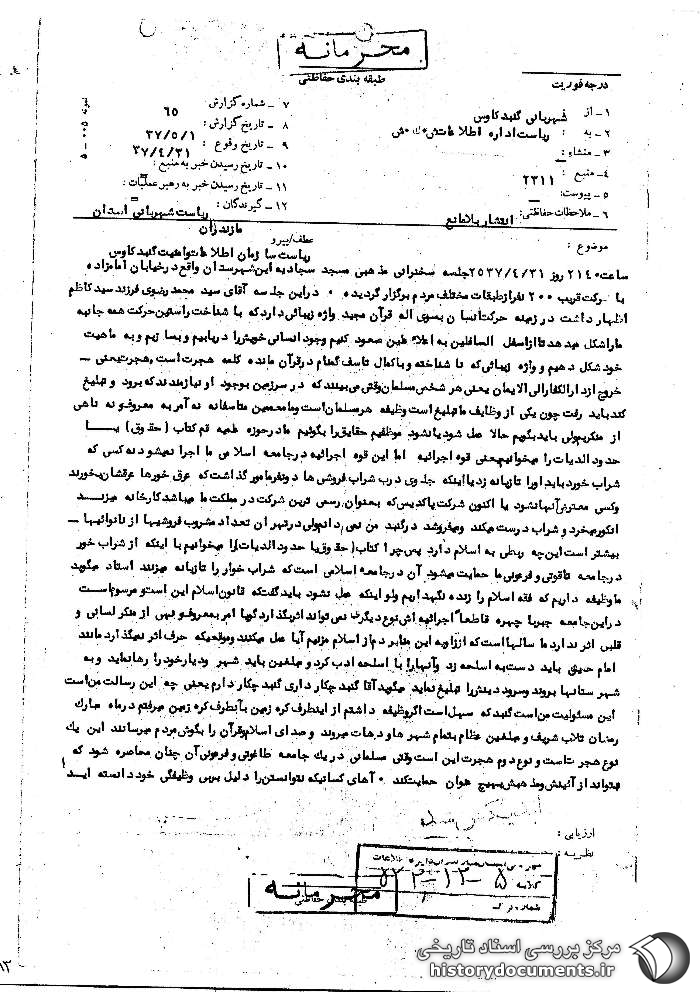 محرمانه
طبقه بندی حفاظتی
درجه فوریت
۱ - از : شهربانی گنبد کاوس
۲ - به : ریاست اداره اطلاعات ش ک ش
۳ - منشاء :
۴ - منبع : ۲۳۱۱
۵ - پیوست :
۶ - ملاحظات حفاظتی : انتشار بلامانع
۷ - شماره گزارش : ۶۵
۸ - تاریخ گزارش : ۳۷/۵/۱
۹ - تاریخ وقوع : ۳۷/۴/۳۱
۱۰ - تاریخ رسیدن خبر به منبع :
۱۱ - تاریخ رسیدن خبر به رهبر عملیات :
۱۲ - گیرندگان : ریاست شهربانی استان
مازندران
موضوع :
عطف/پیرو
ریاست سازمان اطلاعات و امنیت گنبد کاوس
ساعت ۲۱۴۰ روز ۲۵۳۷/۴/۳۱ جلسه سخنرانی مذهبی مسجد سجادیه این شهرستان واقع در خیابان امامزاده
با شرکت قریب ۲۰۰ نفر از طبقات مختلف مردم برگزار گردیده . در این جلسه آقای سید محمد رضوی فرزند سید کاظم
اظهار داشت در زمینه حرکت انسان بسوی اله قرآن مجید واژه زیبائی دارد که با شناخت راستین حرکت همه جانبه
ما را شکل میدهد تا از اسفل السافلین به اعلا علیین صعود کنیم وجود انسانی خویش را دریابیم و بسازیم و به ماهیت
خود شکل دهیم و واژه زیبائی که نا شناخته و با کمال تاسف گمنام در قرآن مانده کلمه هجرت است ، هجرت یعنی -
خروج از دارالکفار الی الایمان یعنی هر شخص مسلمان وقتی می بینند که در سرزمین بوجود او نیازمندند که برود و تبلیغ
کند باید رفت چون یکی از وظایف ما تبلیغ است وظیفه هر مسلمان است و ما معممین متاسفانه نه آمر به معروف و نه ناهی
از منکریم ولی باید بگیم حالا عمل شود یا نشود موظفیم حقایق را بگوئیم ما در حوزه علمیه قم کتاب ( حقوق ) یا
حدود الدیات را میخوانیم یعنی قوه اجرائیه اما این قوه اجرائیه در جامعه اسلامی ما اجرا نمیشود نه کسی که
شراب خورد باید او را تازیانه زد یا اینکه جلوی درب شراب فروشی ها دو نفر مامور گذاشت که عرق خورها عرقشان بخورند
وکسی معترض آنها نشود یا اکنون شرکت پاکدیس که بعنوان رسمی ترین شرکت در مملکت ما میباشد کارخانه میزند
انگور میخرد و شراب درست میکند و میفروشد در گنبد من نمی دانم ولی در تهران تعداد مشروب فروشیها از نانوائیها -
بیشتر است این چه ربطی به اسلام دارد پس چرا کتاب ( حقوق یا حدود الدیات ) را میخوانیم با اینکه از شراب خور
در جامعه طاقوتی و فرعونی ما حمایت میشود آن در جامعه اسلامی است که شراب خوار را تازیانه میزنند استاد میگوید
ما وظیفه داریم که فقه اسلام را زنده نگهداریم ولو اینکه عمل نشود باید گفت که قانون اسلام این است و مرسوم است
در این جامعه چهره قاطعا اجرائیه اش نوع دیگری نمی تواند اثر بگذارد گویا امر به معروف و نهی از منکر لسانی و
قلبی اثر ندارد ما سالها است که از زاویه این منابر دم از اسلام میزنیم آیا عمل میکنند و موقعیکه حرف اثر نمیگذارد مانند
امام حسین باید دست به اسلحه زد و آنها را با اسلحه ادب کرد و مبلغین باید شهر و دیار خود را رها نماید و به
شهرستانها بروند و سرود دینش را تبلیغ نماید میگوید آقا گنبد چکار داری گنبد چکار دارم یعنی چه این رسالت من است
این مسئولیت من است گنبد که سهل است اگر وظیفه داشتم از اینطرف کره زمین با آنطرف کره زمین میرفتم در ماه مبارک
رمضان طلاب شریف و مبلغین عظام بتمام شهرها و دهات میروند و صدای اسلام و قرآن را بگوش مردم میرسانند این یک
نوع هجرت است و نوع دوم هجرت این است وقتی مسلمانی در یک جامعه طاغوتی و فرعونی آن چنان محاصره شود که
نتواند از آئینش و مذهبش بهیچ عنوان حمایت کند . آهای کسانیکه نتوانستن را دلیل بر بی وظیفگی خود دانسته اید
ارزیابی :
نظریه :
کلاسه ۵-۱۲-
شماره برگ
محرمانه
طبقه بندی حفاظتی
مرکز بررسی اسناد تاریخی
historydocuments.ir